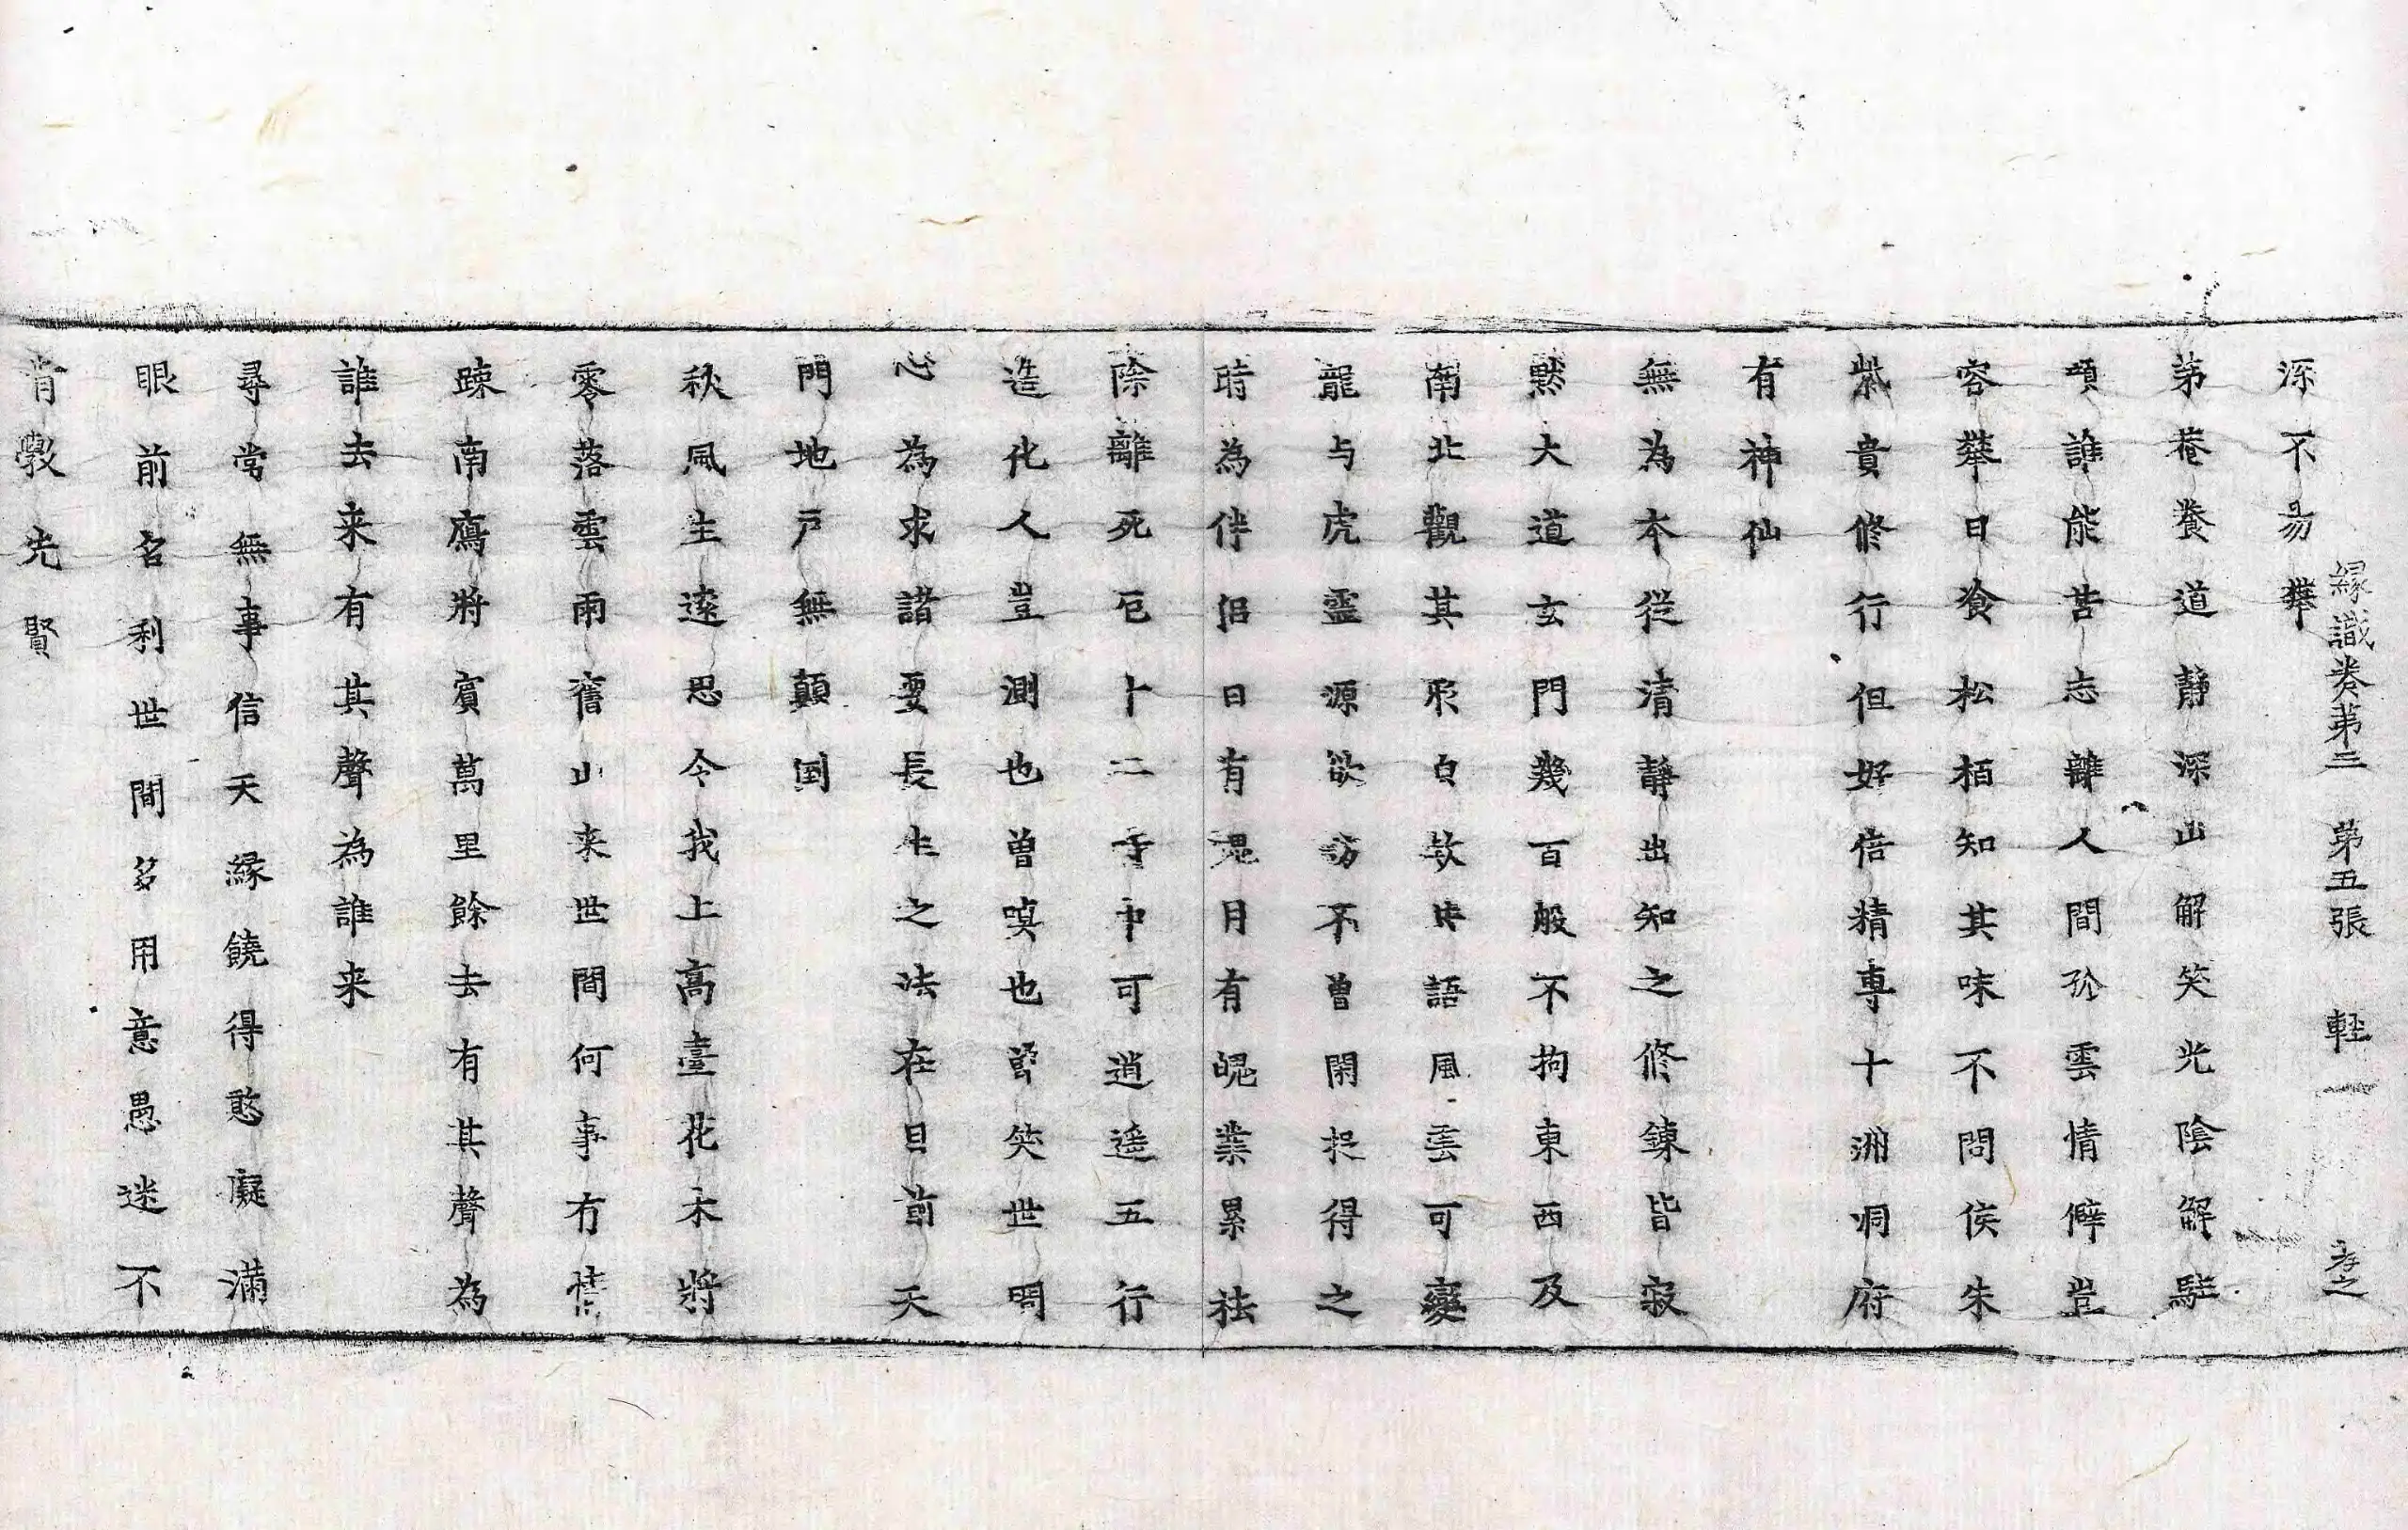 深不易攀
緣識卷第三　第五張　輕　孝之
茅菴養道靜深山解笑光陰解駐
頭誰能苦志離人間於雲情僻豈
容攀日飡松栢知其味不問侯朱
紫貴修行但好倍精專十洲洞府
有神仙
無為本從清靜出知之修鍊皆寂
默大道玄門幾百般不拘東西及
南北觀其形白牛語風雲可變
龍与虎靈源欲訪不曾閑捉得之
時為伴侶日有䰟月有魄業累祛
除離死厄十二寺中可逍遥五行
造化人豈測也曾嗔也曾笑世間
心為求諸要長生之法在目前天
門地戸無顛倒
秋風生遠思今我上高臺花木將
零落雲雨舊山来世間何事有情
踈南鴈將賓萬里餘去有其聲為
誰去来有其聲為誰来
尋常無事信天緣饒得憨癡滿
眼前名利世間多用意愚迷不
肯斆先賢